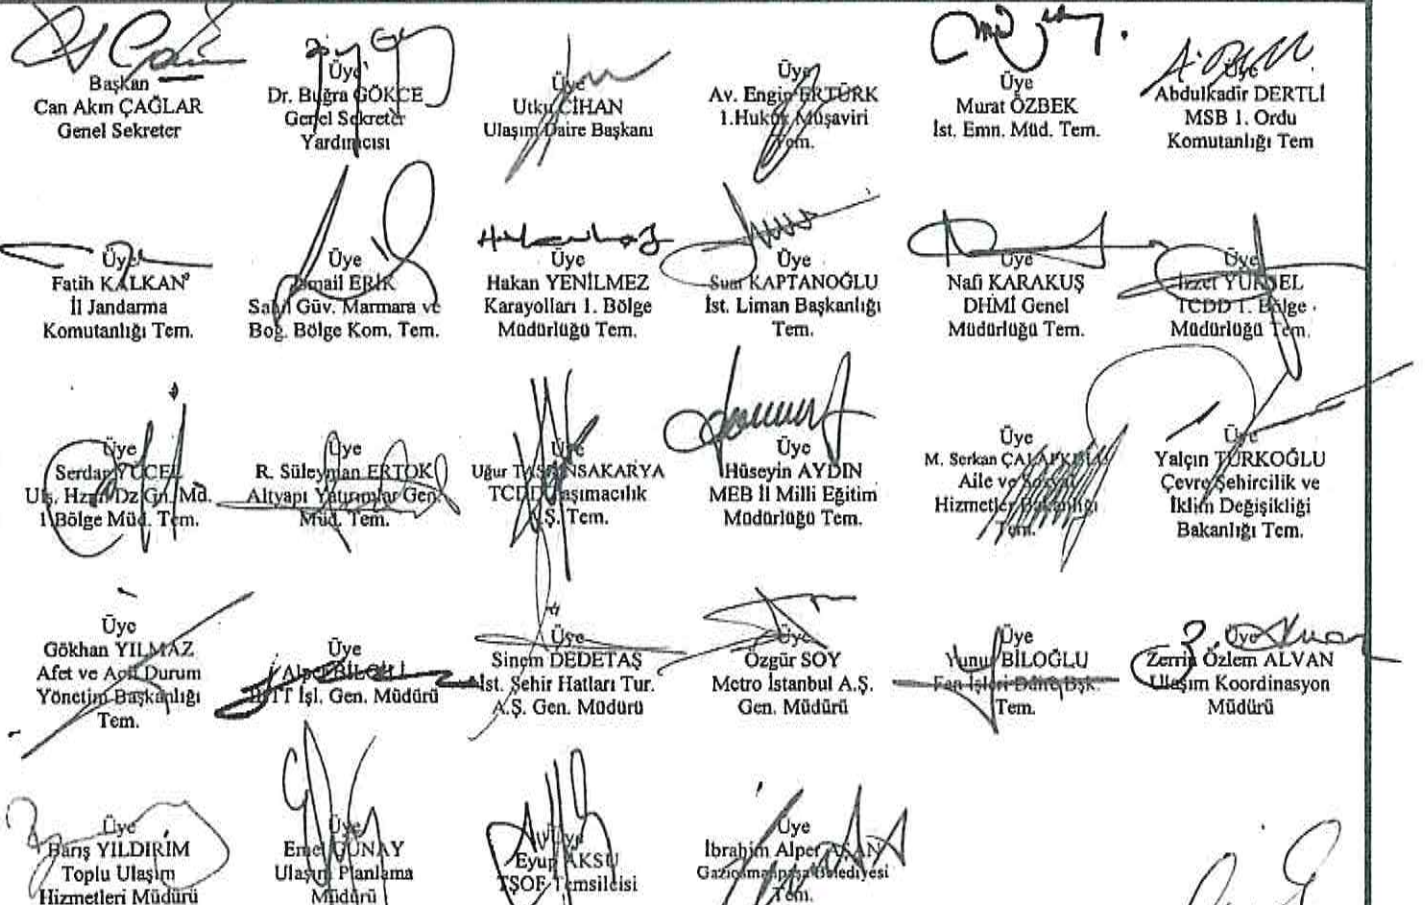 Başkan
Can Akın ÇAĞLAR
Genel Sekreter
Üye
Dr. Buğra GÖKCE
Genel Sekreter
Yardımcısı
Üye
Utku CİHAN
Ulaşım Daire Başkanı
Üye
Av. Engin ERTÜRK
1.Hukuk Müşaviri
Tem.
Üye
Murat ÖZBEK
İst. Emn. Müd. Tem.
Üye
Abdulkadir DERTLİ
MSB 1. Ordu
Komutanlığı Tem
Üye
Fatih KALKAN
İl Jandarma
Komutanlığı Tem.
Üye
İsmail ERİK
Sahil Güv. Marmara ve
Boğ. Bölge Kom. Tem.
Üye
Hakan YENİLMEZ
Karayolları 1. Bölge
Müdürlüğü Tem.
Üye
Suat KAPTANOĞLU
İst. Liman Başkanlığı
Tem.
Üye
Nafi KARAKUŞ
DHMİ Genel
Müdürlüğü Tem.
Üye
İzzet
TCDD 1. Bölge
Müdürlüğü Tem.
Üye
Serdar YÜCEL
Ulş. Hzm. Dz Gn. Md.
1.Bölge Müd. Tem.
Üye
R. Süleyman ERTOK
Altyapı Yatırımlar Gen.
Müd. Tem.
Üye
Uğur
TCDD Taşımacılık
A.Ş. Tem.
Üye
Hüseyin AYDIN
MEB İl Milli Eğitim
Müdürlüğü Tem.
Üye
M. Serkan
Aile ve Sosyal
Hizmetler Bakanlığı
Tem.
Üye
Yalçın TÜRKOĞLU
Çevre Şehircilik ve
İklim Değişikliği
Bakanlığı Tem.
Üye
Gökhan YILMAZ
Afet ve Acil Durum
Yönetim Başkanlığı
Tem.
Üye
Alper BİLGİLİ
İETT İşl. Gen. Müdürü
Üye
Sinem DEDETAŞ
İst. Şehir Hatları Tur.
A.Ş. Gen. Müdürü
Üye
Özgür SOY
Metro İstanbul A.Ş.
Gen. Müdürü
Üye
Yunus BİLOĞLU
Fen İşleri Daire Bşk.
Tem.
Üye
Zerrin Özlem ALVAN
Ulaşım Koordinasyon
Müdürü
Üye
Barış YILDIRIM
Toplu Ulaşım
Hizmetleri Müdürü
Üye
Emel GÜNAY
Ulaşım Planlama
Müdürü
Üye
Eyup AKSU
TŞOF Temsilcisi
Üye
İbrahim Alper
Gaziosmanpaşa Belediyesi
Tem.